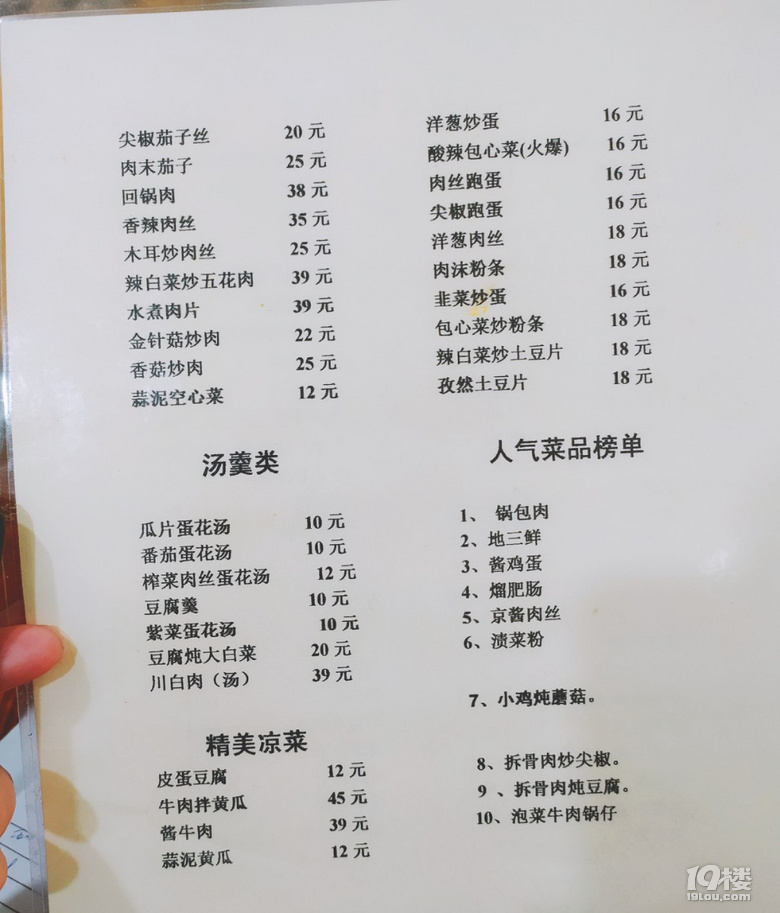 尖椒茄子丝 20 元
肉末茄子 25 元
回锅肉 38 元
香辣肉丝 35 元
木耳炒肉丝 25 元
辣白菜炒五花肉 39 元
水煮肉片 39 元
金针菇炒肉 22 元
香菇炒肉 25 元
蒜泥空心菜 12 元
洋葱炒蛋 16 元
酸辣包心菜(火爆) 16 元
肉丝跑蛋 16 元
尖椒跑蛋 16 元
洋葱肉丝 18 元
肉沫粉条 18 元
韭菜炒蛋 16 元
包心菜炒粉条 18 元
辣白菜炒土豆片 18 元
孜然土豆片 18 元
汤羹类
瓜片蛋花汤 10 元
番茄蛋花汤 10 元
榨菜肉丝蛋花汤 12 元
豆腐羹 10 元
紫菜蛋花汤 10 元
豆腐炖大白菜 20 元
川白肉（汤） 39 元
精美凉菜
皮蛋豆腐 12 元
牛肉拌黄瓜 45 元
酱牛肉 39 元
蒜泥黄瓜 12 元
人气菜品榜单
1、 锅包肉
2、地三鲜
3、酱鸡蛋
4、熘肥肠
5、京酱肉丝
6、渍菜粉
7、小鸡炖蘑菇。
8、拆骨肉炒尖椒。
9 、拆骨肉炖豆腐。
10、泡菜牛肉锅仔
19楼
19lou.com